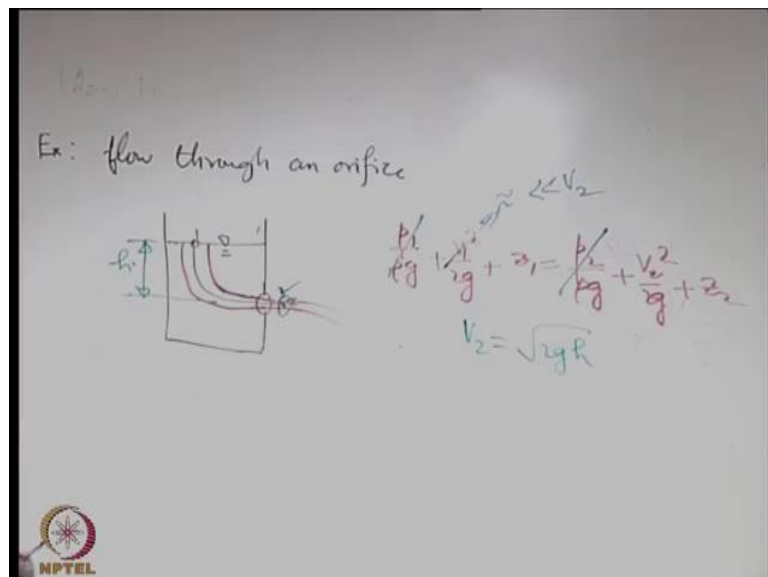 Ex: flow through an orifice
≈ << V₂
p₁/ρg + V₁²/2g + z₁ = p₂/ρg + V₂²/2g + z₂
h
V₂ = √2gh
NPTEL